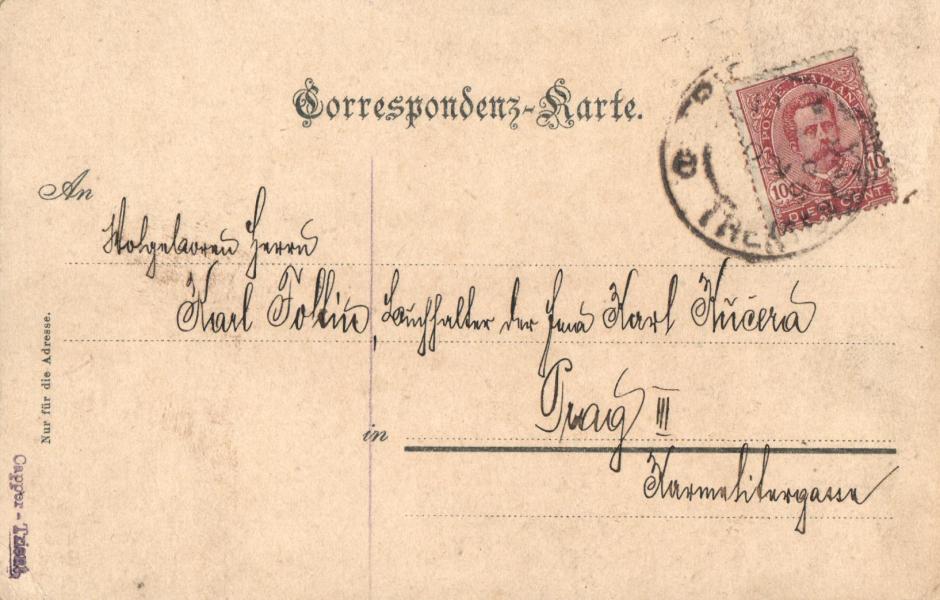 Correspondenz-Karte.
POSTE ITALIANE
10 10
DIECI CENT.
An
Wolgeboren Herrn
Karl Tobin, Buchhalter der Fma Karl Kučera
in Prag III
Karmelitergasse
Nur für die Adresse.
Capper - Triest